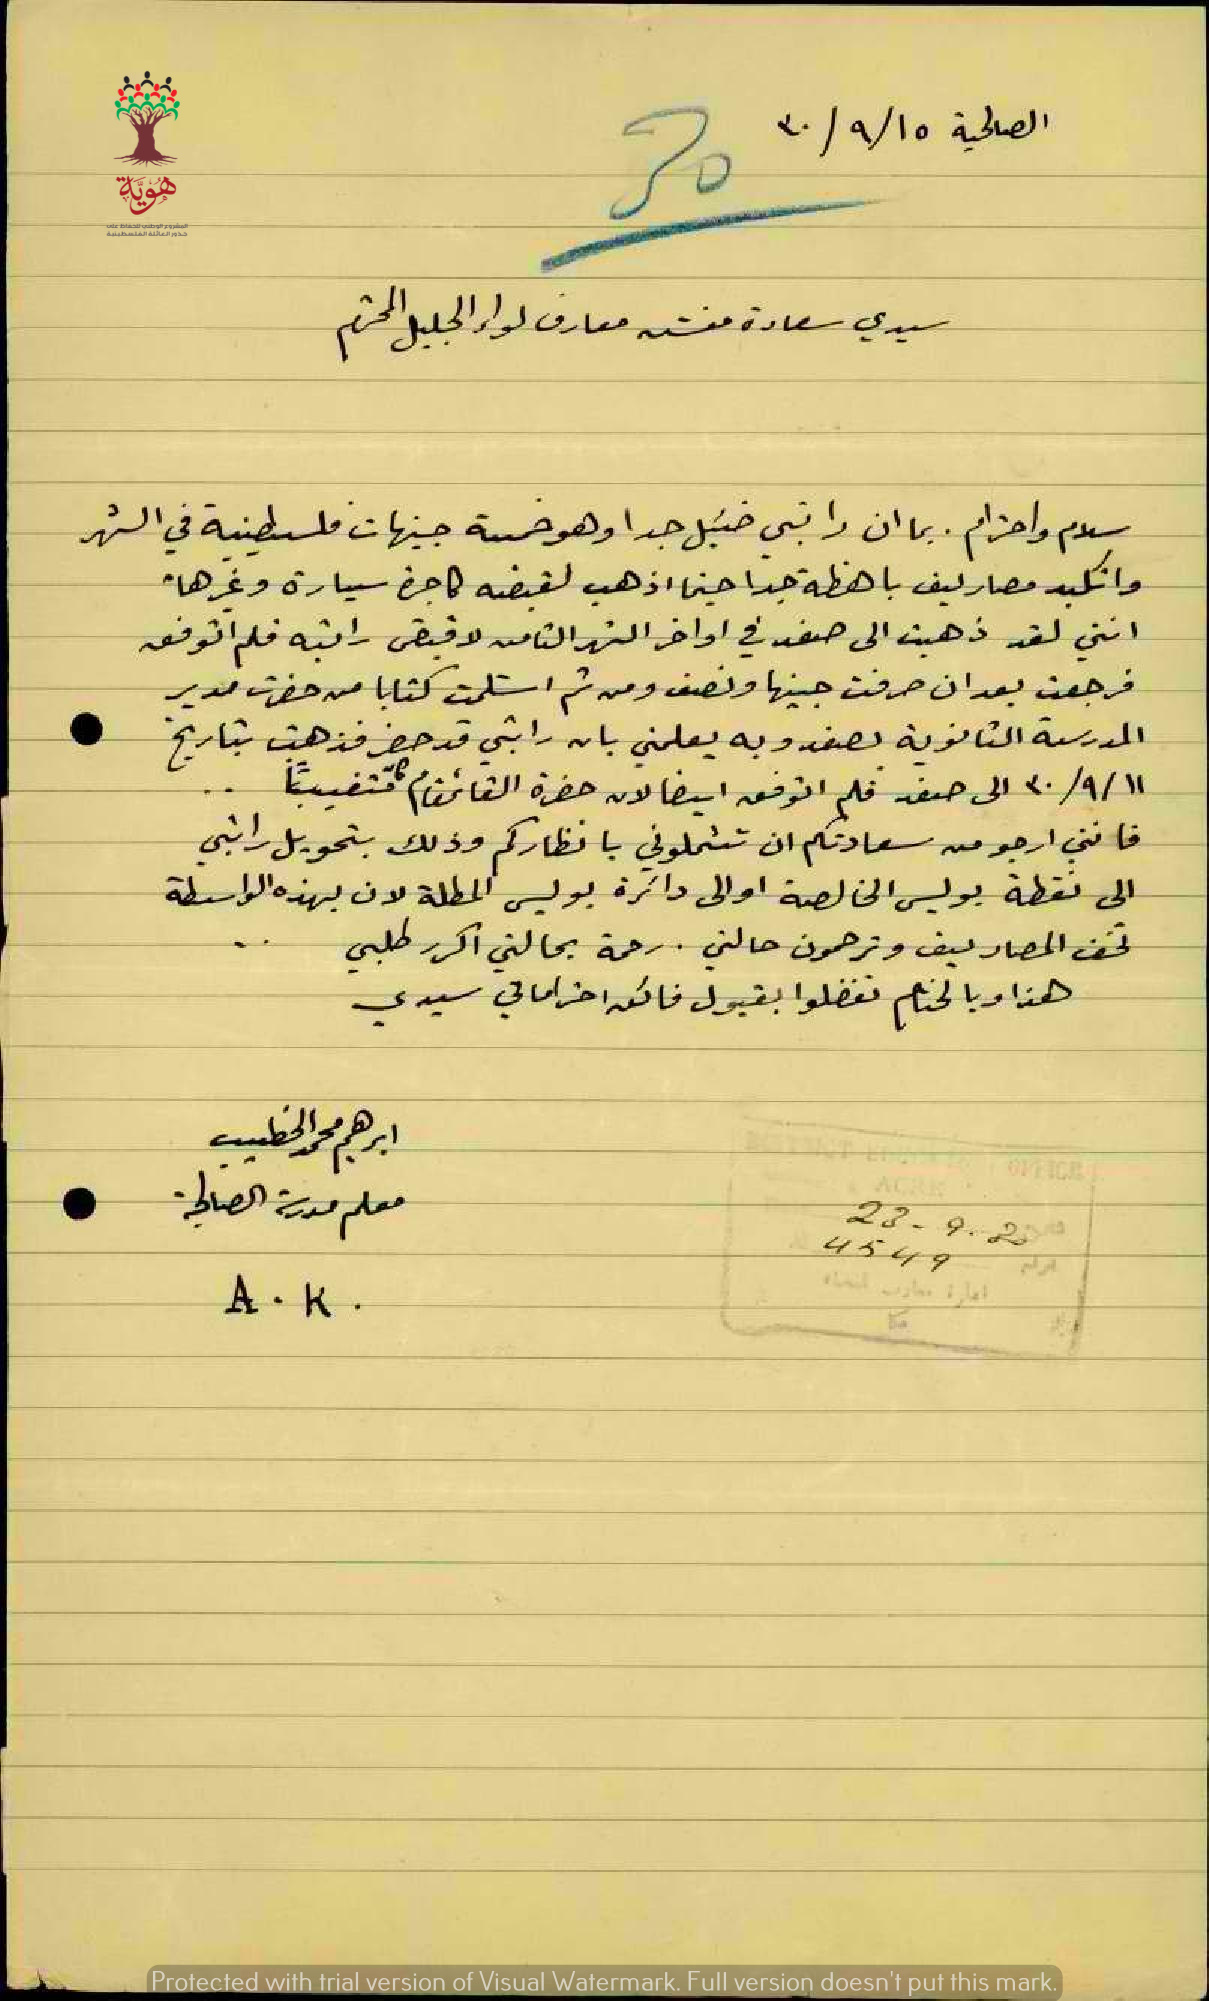 الصالحية ١٥/٩/٣٠
هُوِيَّة
المشروع الوطني للحفاظ على
جذور العائلة الفلسطينية
سيدي سعادة مفتش معارف لواء الجليل المحترم
سلام واحترام . بما ان راتبي ضئيل جدا وهو خمسة جنيهات فلسطينية في الشهر
واتكبد مصاريف باهظة جدا حينما اذهب لقبضه كاجرة سيارة وغيرها
انني لقد ذهبت الى صفد في اواخر الشهر الثامن لاقبض راتبه فلم اتوفق
فرجعت بعد ان صرفت جنيها ونصف ومن ثم استلمت كتابا من حضرت مدير
المدرسة الثانوية بصفد وبه يعلمني بان راتبي قد حضر فذهبت بتاريخ
١١/٩/٣٠ الى صفد فلم اتوفق ايضا لان حضرة القائمقام
فانني ارجو من سعادتكم ان تشملوني بانظاركم وذلك بتحويل راتبي
الى نقطة بوليس الخالصة او الى دائرة بوليس المطلة لان بهذه الواسطة
تخف المصاريف وترحمون حالتي . رحمة بحالتي اكرر طلبي ..
هذا وبالختام تفضلوا بقبول فائق احتراماتي سيدي
ابرهيم محمد الخطيب
معلم مدرسة الصالحية
A. K.
ACRE
23-9-30
4549
عكا
Protected with trial version of Visual Watermark. Full version doesn't put this mark.